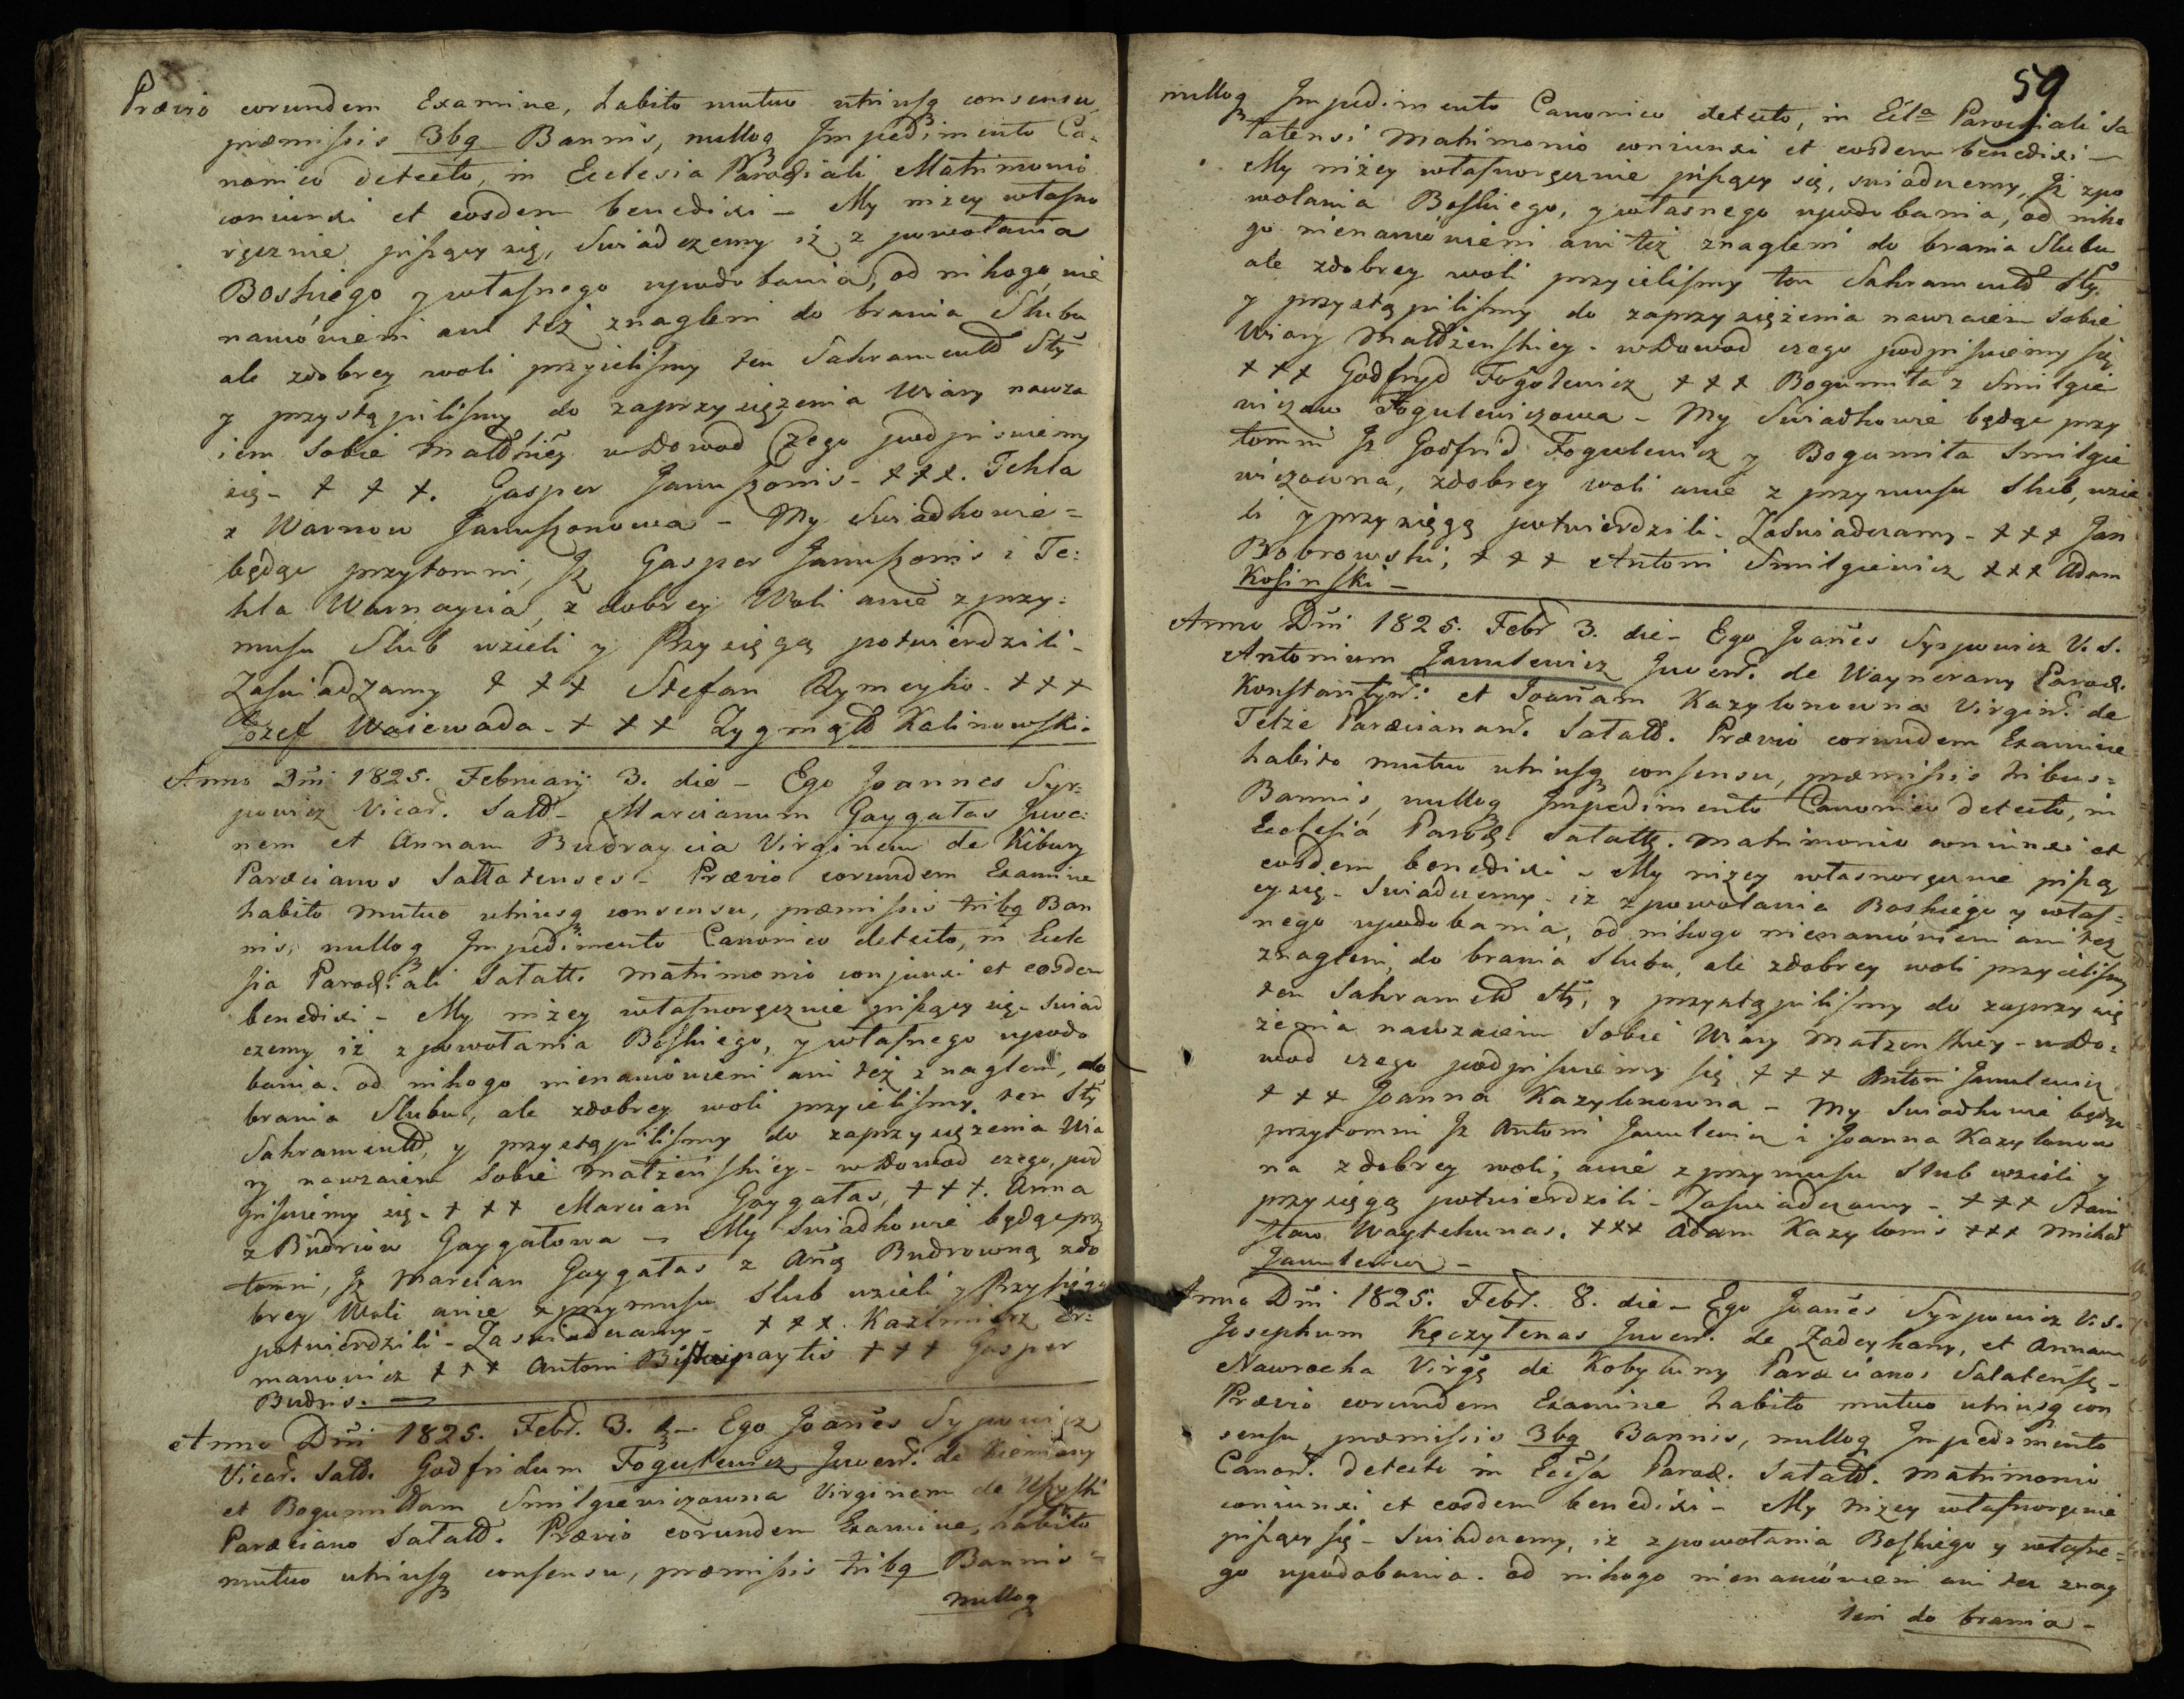 Prævio eorundem Examine, habito mutuo utriusq consensu
præmissis 3bq Bannis, nulloq Impedimento Ca-
nonico detecto, in Ecclesia Parochiali Matrimonio
coniunxi et eosdem benedixi - My niżey własno
ręcznie piszący się, Swiadczemy iż z powołania
Boskiego y własnego upodobania, od nikogo nie
namówieni ani też znagleni do brania Slubu
ale zdobrey woli przyieliśmy ten Sakrament Sty
y przystąpiliśmy do zaprzysiężenia Wiary nawza
iem sobie Małdńiey wdowod Czego podpisuiemy
się - + + +. Gasper Januszonis - + + +. Tekla
z Warnow Januszonowa - My Swiadkowie =
będąc przytomni, Jż Gasper Januszonis i Te:
kla Warnaycia, z dobrey Woli anie z przy:
musu Slub wzieli y Przysięgą potwierdzili -
Zaswiadzamy + + + Stefan Rymeyko - + + +
Jozef Woiewada - + + + Zygmąt Kalinowski.
Anno Dni 1825. Februarij 3. die - Ego Joannes Syr-
powicz Vicar. Sałt - Marcianum Gaygałas Juve:
nem et Annam Budraycia Virginem de Kibury
Paræcianos Sałłatenses - Prævio eorundem Examine
habito mutuo utriusq consensu, præmissis tribq Ban
nis, nulloq Impedimento Canonico detecto, in Eccle
sia Parochiali Sałatt. Matrimonio conjunxi et eosdem
benedixi - My niżey własnoręcznie piszący się - swiad
czemy iż z powołania Boskiego, y własnego upodo
bania. od nikogo nienamówieni ani też znagleni, do
brania Slubu, ale zdobrey woli przyieliśmy ten Sty
Sakrament, y przystąpiliśmy do zaprzysiężenia Wia
ry nawzaiem sobie Małżeńskiey - wdowod czego, pod
pisuiemy się - + + + Marcian Gaygałas, + + +. Anna
z Budriów Gaygałowa - My Swiadkowie będąc przy
tomni, Jż Marcian Gaygałas z Anną Budrowną zdo
brey Woli anie zprzymusu Slub wzieli y Przysięgą
potwierdzili - Zaswiadczamy - + + + Kazimierz Er:
manowicz + + + Antoni + + + Gasper
Budris.
Anno Dni 1825. Febr. 3. d - Ego Joanes Syrpowicz
Vicar. Sałt. Godfridum Fogulewicz Juven. de
et Bogumiłłam Smilgiewiczowna Virginem de
Paræciano Sałatt. Prævio eorundem Examine, habito
mutuo utriusq consensu, præmissis tribq Bannis -
nulloq
59
nulloq Impedimento Canonico detecto, in Ecla Parochiali Sa
łatensi Matrimonio coniunxi et eosdem benedixi -
My niżey własnoręcznie piszący się, swiadczemy, Jż zpo
wołania Boskiego, y własnego upodobania, od niko
go nienamówieni ani też znagleni do brania Slubu
ale zdobrey woli przyieliśmy ten Sakrament Sty
y przystąpiliśmy do zaprzysiężenia nawzaiem sobie
Wiary Małdżenskiey - wdowod czego podpisuiemy się
+ + + Godfryd Fogolewicz + + + Bogumiła z Smilgie
wiczow Fogulewiczowa - My Swiadkowie będąc przy
tomni Jż Godfrid Fogulewicz y Bogumiła Smilgie
wiczowna, zdobrey woli anie z przymusu Slub, wzie
li y przysięgą potwierdzili - Zaswiadczamy - + + + Jan
Bobrowski, + + + Antoni Smilgiewicz + + + Adam
Kosinski -
Anno Dni 1825. Febr 3. die - Ego Joanes Syrpowicz V. S.
Antonium Jamulewicz Juven. de Waynerany Paroch.
Konstantyn: et Joanam Kazylonowna Virgin. de
Telże Paræcianam. Sałatt. Prævio eorundem Examine
habito mutuo utriusq consensu, præmissis tribus =
Bannis, nulloq Impedimento Canonico detecto, in
Ecclesia Paroch. Sałatt. Matrimonio coniunxi et
eosdem benedixi - My niżey własnoręcznie pisząc
cy się - Swiadczemy - iż zpowołania Boskiego y włas =
nego upodobania, od nikogo nienamówieni ani też
znagleni, do brania Slubu, ale zdobrey woli przyieliśmy
ten Sakrament Sty, y przystąpiliśmy do zaprzysię
żenia nawzaiem sobie Wiary Małżenskiey - wdo:
wod czego podpisuiemy się + + + Antoni Jamulewicz
+ + + Joanna Kazylonowna - My Swiadkowie będąc
przytomni Jż Antoni Jamulewicz i Joanna Kazylonow
na zdobrey woli; anie zprzymusu Slub wzieli y
przysięgą potwierdzili - Zaswiadczamy - + + + Stani
sław Waytekunas. + + + Adam Kazylonis + + + Michał
Jamulewicz -
Anno Dni 1825. Febr. 8. die - Ego Joanes Syrpowicz V. S.
Josephum Kęczytenas Juven. de Zadeykany, et Annam
Nawrocka Virgę de Kobyliny Paræcianos Sałatensę -
Prævio eorundem Examine habito mutuo utriusq con
sensu, præmissis 3bq Bannis, nulloq Impedimento
Canon. detecto in Ecclsa Paroch. Sałatt. Matrimonio
coniunxi et eosdem benedixi - My niżey własnoręcznie
piszący się - Swiadczemy, iż zpowołania Boskiego y własne =
go upodobania. od nikogo nienamówieni ani też znag
leni do brania -